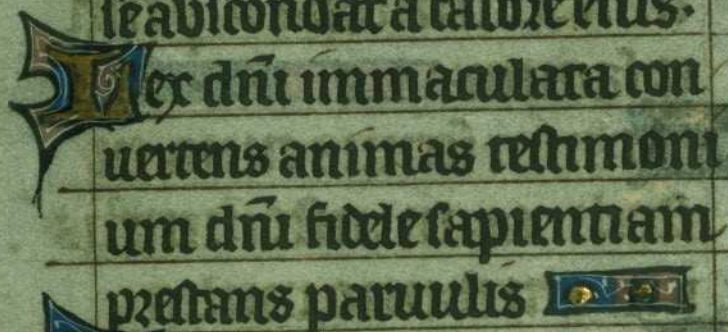 se abscondat a calore eius.
Lex dn̄i immaculata con
uertens animas testimoni
um dn̄i fidele sapientiam
prestans paruulis